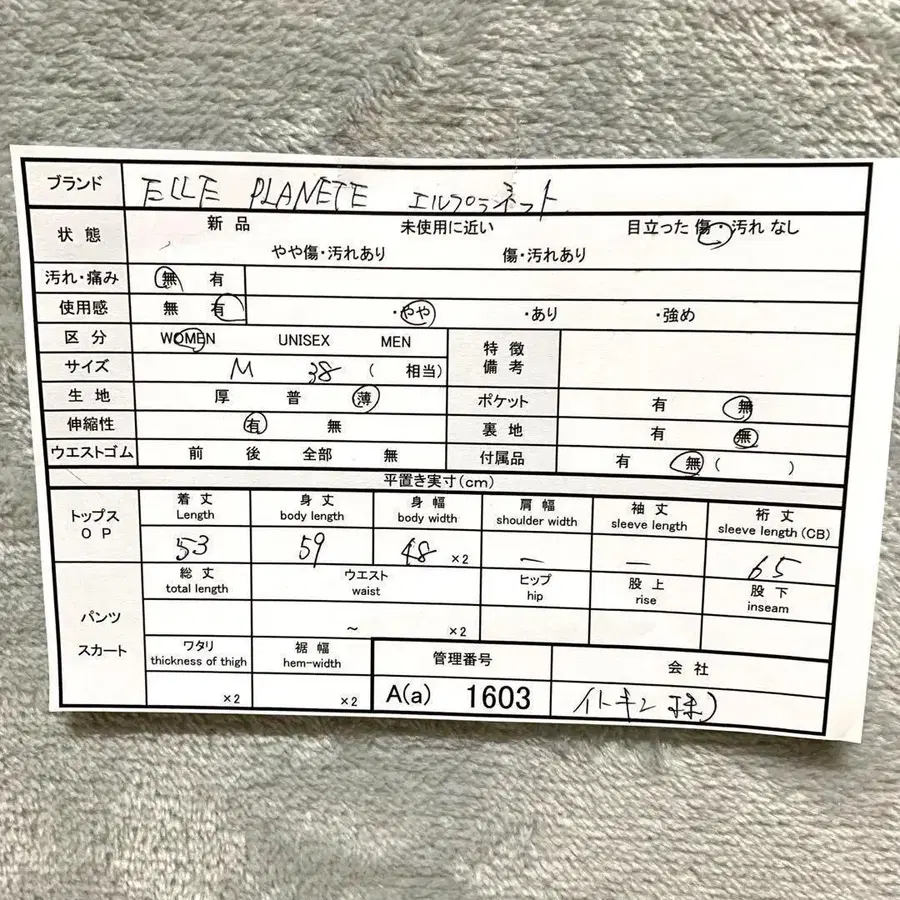 ブランド ELLE PLANETE エルプラネット
状態 新品 未使用に近い 目立った傷・汚れなし
やや傷・汚れあり 傷・汚れあり
汚れ・痛み 無 有
使用感 無 有 ・やや ・あり ・強め
区分 WOMEN UNISEX MEN 特徴
備考
サイズ M 38 ( 相当)
生地 厚 普 薄 ポケット 有 無
伸縮性 有 無 裏地 有 無
ウエストゴム 前 後 全部 無 付属品 有 無 ( )
平置き実寸(cm)
トップス
OP
着丈 身丈 身幅 肩幅 袖丈 裄丈
Length body length body width shoulder width sleeve length sleeve length (CB)
53 59 48 ×2 — — 65
パンツ
スカート
総丈 ウエスト ヒップ 股上 股下
total length waist hip rise inseam
~ ×2
ワタリ 裾幅 管理番号 会社
thickness of thigh hem-width
×2 ×2 A(a) 1603 イトキン(株)